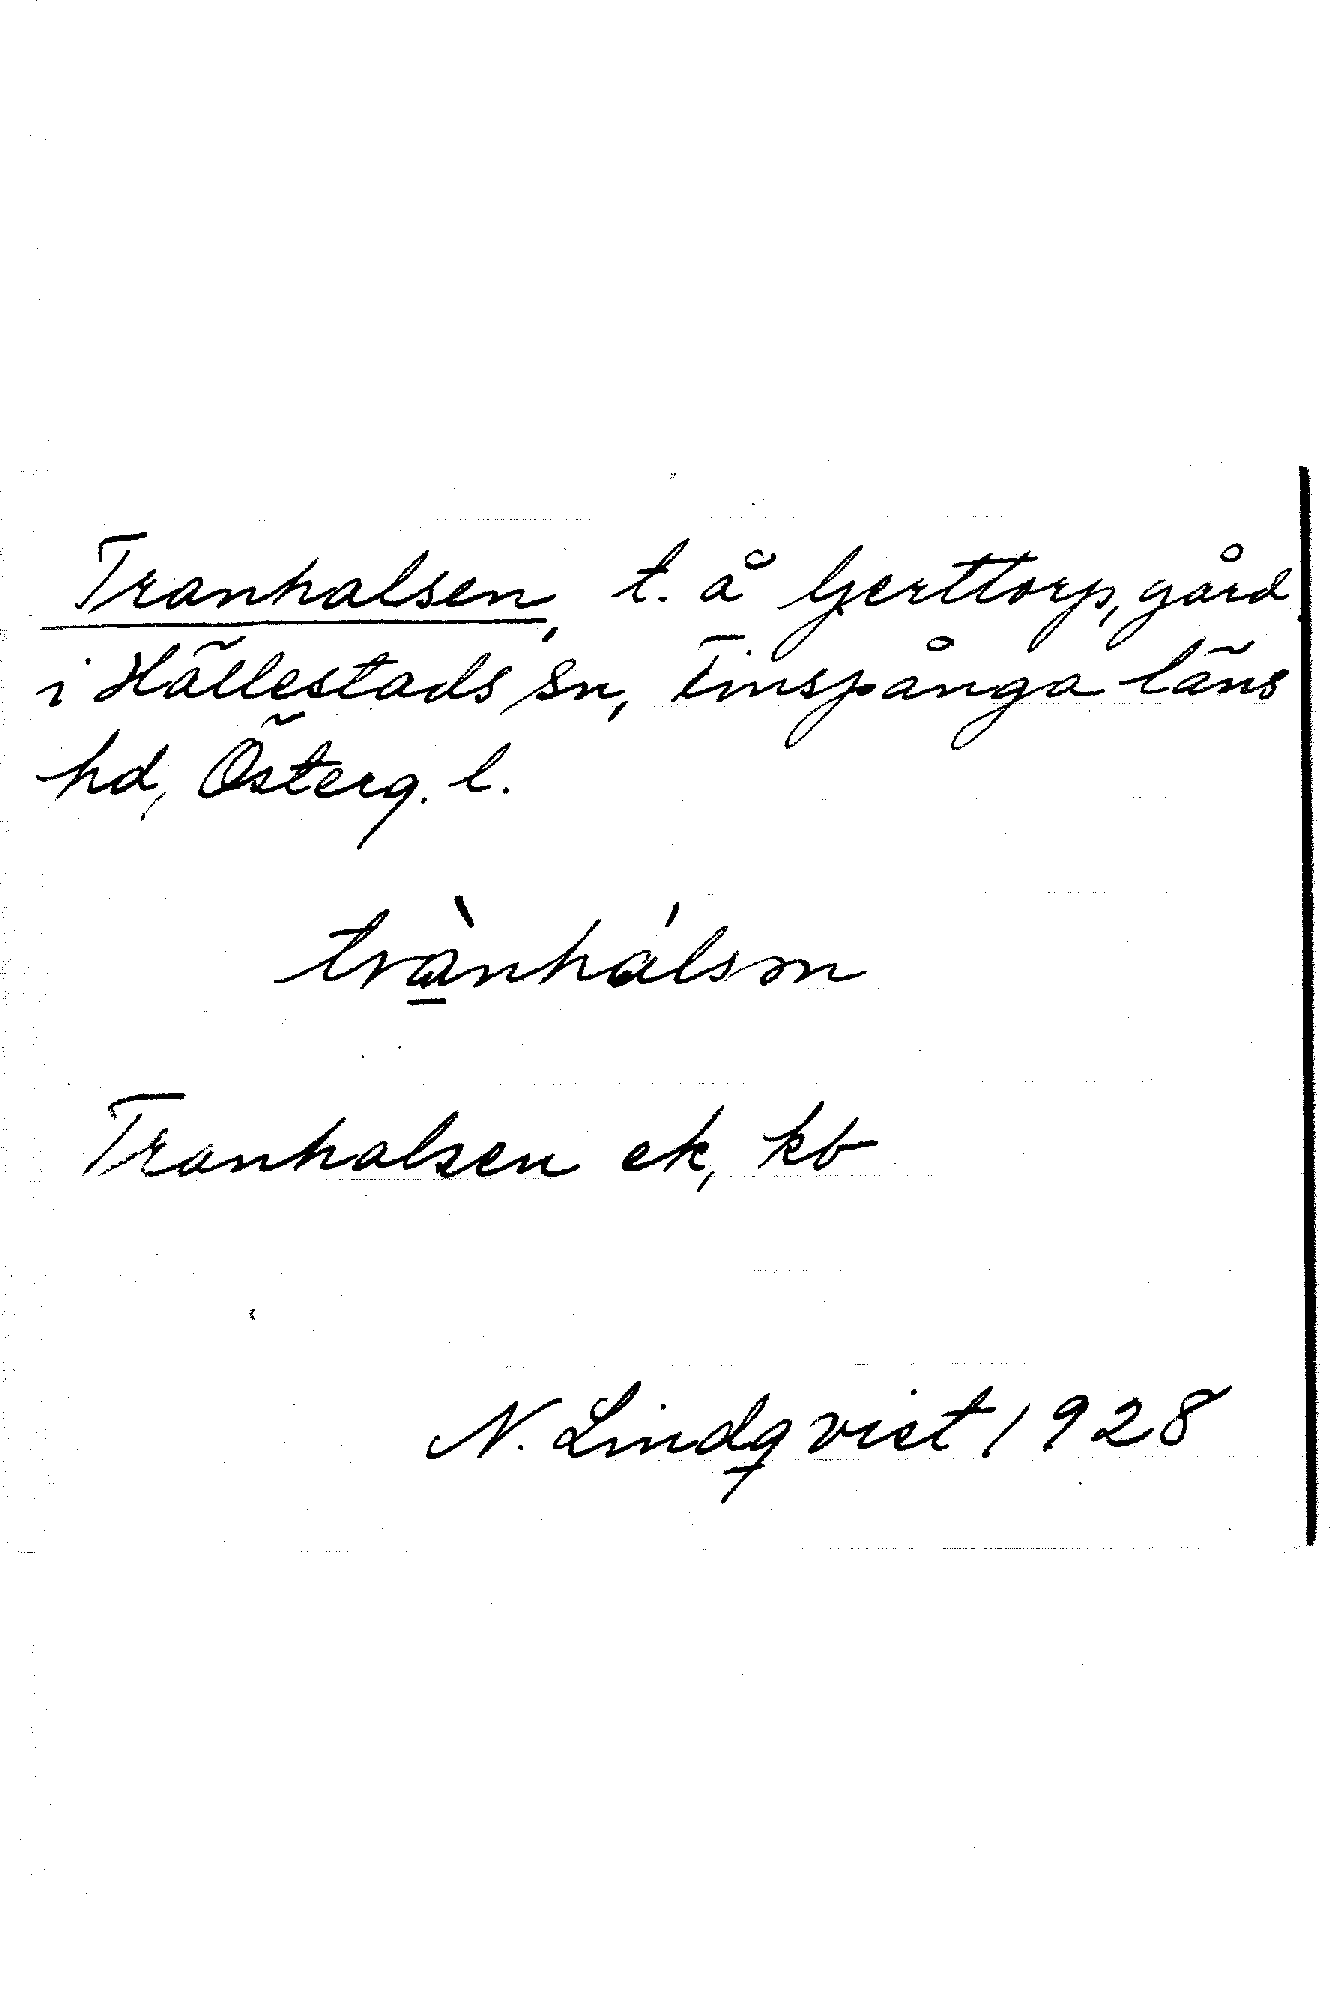 Tranhalsen, t. å Gerttorp, gård
i Hällestads sn, Finspånga läns
hd, Österg. l.
trànhálsən
Tranhalsen ek, kb
N. Lindqvist 1928